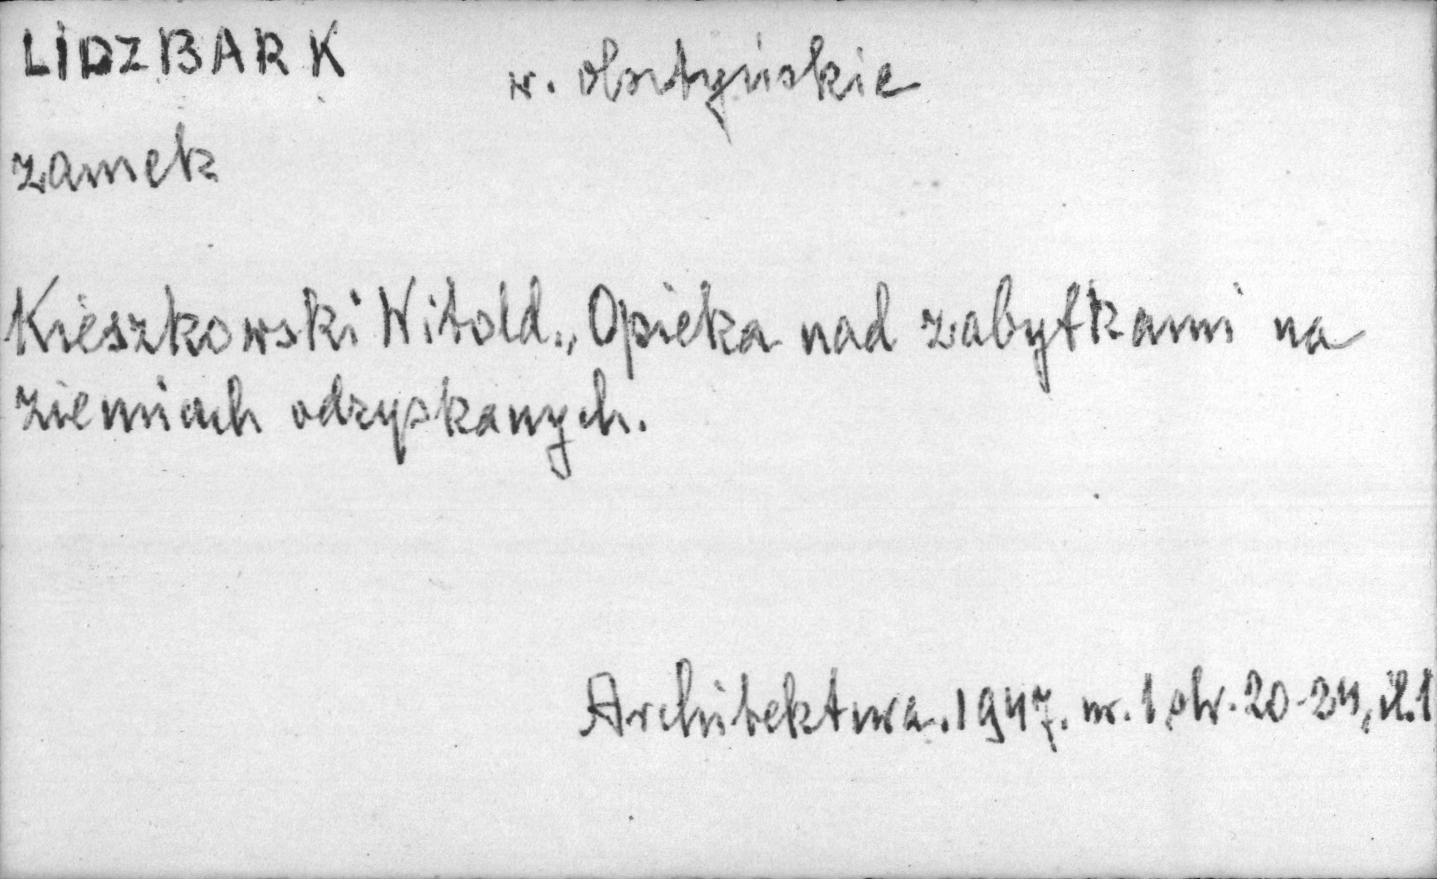 LIDZBARK w. olsztyńskie
zamek
Kieszkowski Witold., Opieka nad zabytkami na
ziemiach odzyskanych.
Architektura. 1947. nr. 1, str. 20-24, il. 1